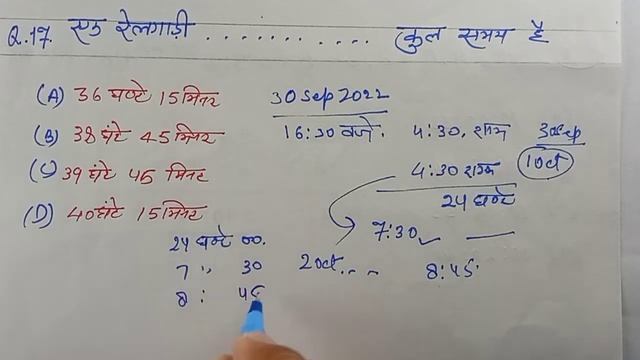 Q.17. एक रेलगाड़ी ............ कुल समय है
(A) 36 घण्टे 15 मिनट
(B) 38 घंटे 45 मिनट
(C) 39 घंटे 45 मिनट
(D) 40 घंटे 15 मिनट
30 Sep 2022
16:30 बजे. 4:30, शाम 30 Sep
4:30 शाम 1 Oct
24 घण्टे
7:30
24 घण्टे 00.
7 " 30 2 Oct.. .. 8:45
8 : 45